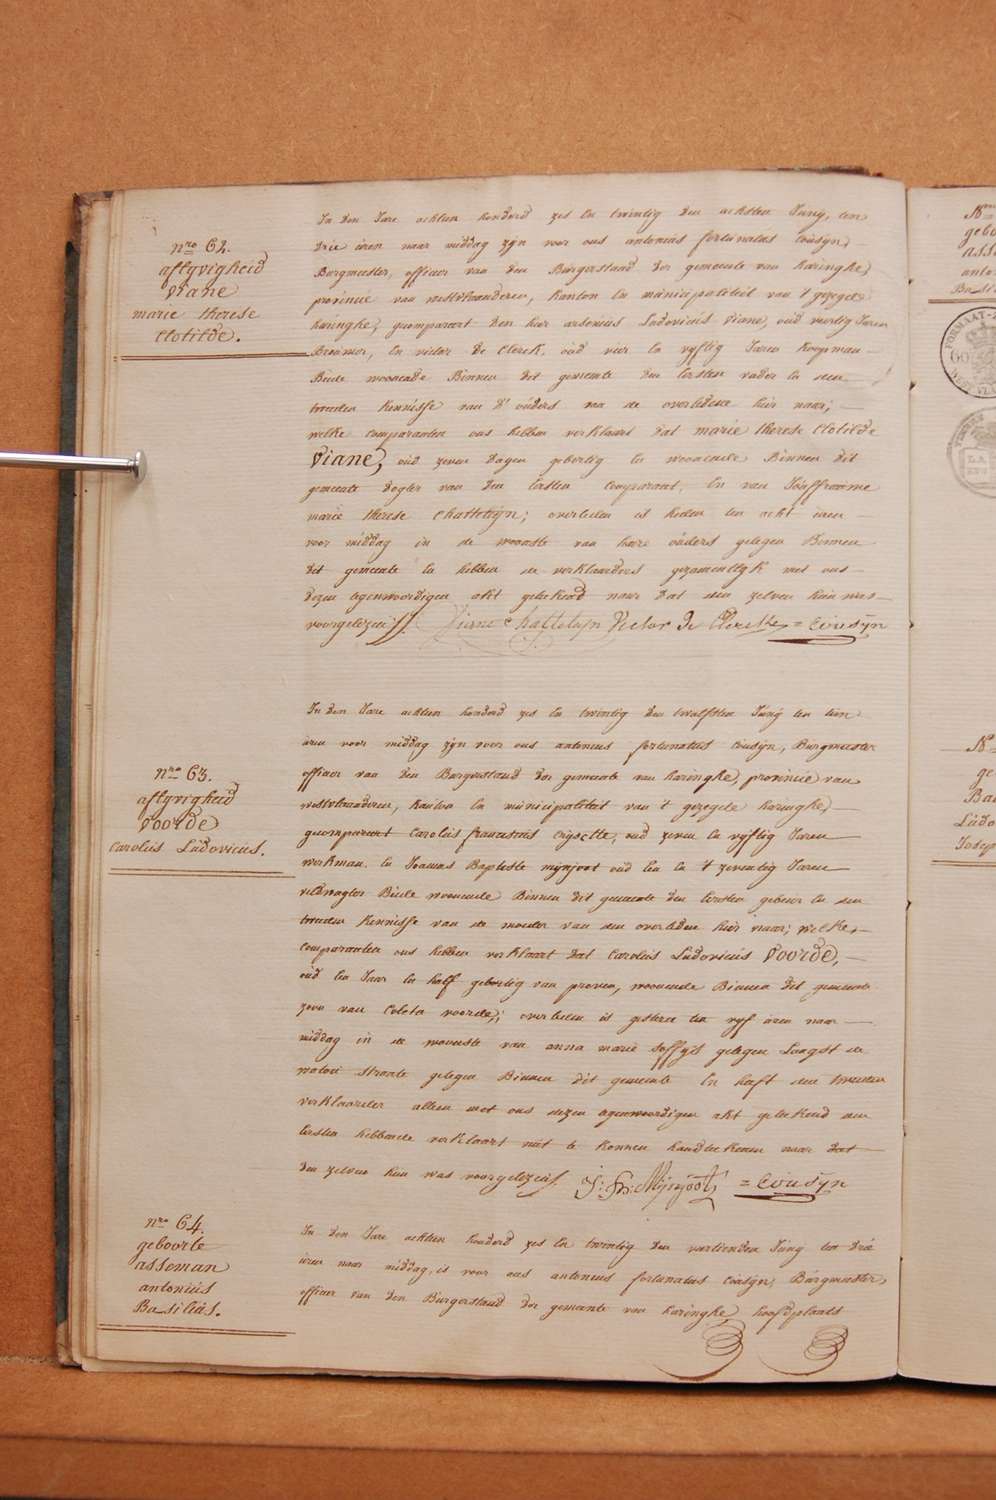 nro 62.
aflyvigheid
Viane
marie therese
Clotilde.
In den Jare achtien honderd zes En twintig den achsten Juny, ten
drie üren naer middag zÿn voor ons antonius fortunatus Coúsÿn,
Burgmeester, officier van den Bürgerstand der gemeente van haringhe,
provincie van westvlaanderen, kanton En múnicipaliteit van 't gezegde
haringhe, gecompareert den heer arsenius Ludovicus Viane, oúd veertig Jaren
Broúwer, En victor de Clerck, oúd vier En vyftig Jaren koopman
Beide woonende Binnen dit gemeente den Eersten vader En den
tweeden kennisse van d' oúders van de overledene hier naer;
welke comparanten ons hebben verklaart dat marie therese Clotilde
Viane, oúd zeven dagen gebortig En woonende Binnen dit
gemeente dogter van den Eersten comparant, En van Joúffrouwe
marie therese Chattelÿn; overleden is heden ten acht üren
voor middag in de wooste van hare oúders gelegen Binnen
dit gemeente En hebben de verklaarders gezamentlÿk met ons
dezen tegenwoordigen akt geteekend naer dat den zelven hún was
voorgelezen. Viane Chattelyn Victor De Clerck = Coúsÿn
nro 63.
aflyvigheid
Voorde
Carolús Lúdovicus.
In den Jare achtien honderd zes En twintig den twalfsten Juny ten tien
üren voor middag zÿn voor ons antonius fortunatus Coúsÿn, Bürgmeester
officier van den Bürgerstand der gemeente van haringhe, provincie van
westvlaanderen, kanton En múnicipaliteit van 't gezegde haringhe,
gecompareert Carolús franciscús oúd zeven En vyftig Jaren
werkman, En Joannes Baptiste mÿnjoot oúd Een En 't zeventig Jaren
veldwagter Beide woonende Binnen dit gemeente den Eersten gebúer En den
tweeden kennisse van de moeder van den overleden hier naer; welke
comparanten ons hebben verklaart dat Carolús Lúdovicús Voorde,
oúd Een Jaar En half gebortig van proven, woonende Binnen dit gemeente
zoon van Coleta voorde; overleden is gisteren ten vyf üren naer
middag in de wooste van anna marie gelegen Langst de
straate gelegen Binnen dit gemeente En heeft den tweeden
verklaarder alleen met ons dezen tegenwoordigen akt geteekend den
Eersten hebbende verklaart niet te konnen handteekenen naer dat
den zelven hún was voorgelezen. J: B: Mÿnjoot = Coúsÿn
nro 64.
geboorte
asseman
antoniús
Basiliús.
In den Jare achtien honderd zes En twintig den veertienden Juny ten drie
üren naer middag, is voor ons antonius fortunatus Coúsÿn, Búrgmeester,
officier van den Bürgerstand der gemeente van haringhe, hoofdplaats